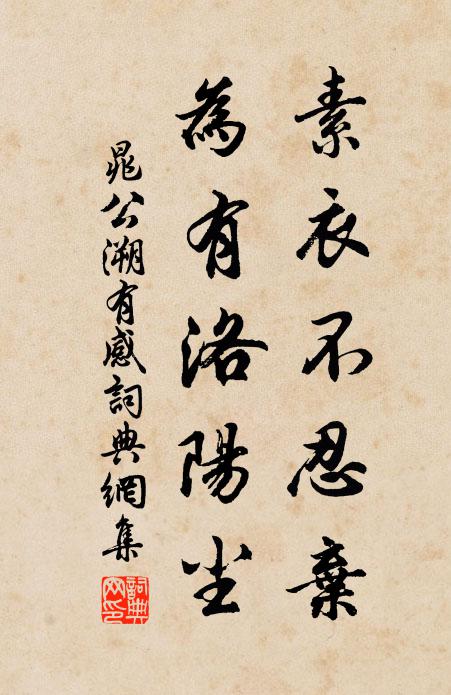 素衣不忍棄
為有洛陽尘
晁公溯有感詞典網集
詞典